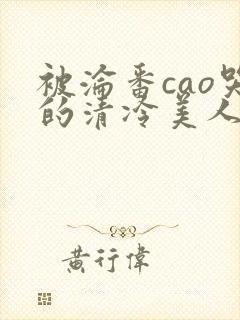 被淪番cao哭
的清冷美人
黄行偉